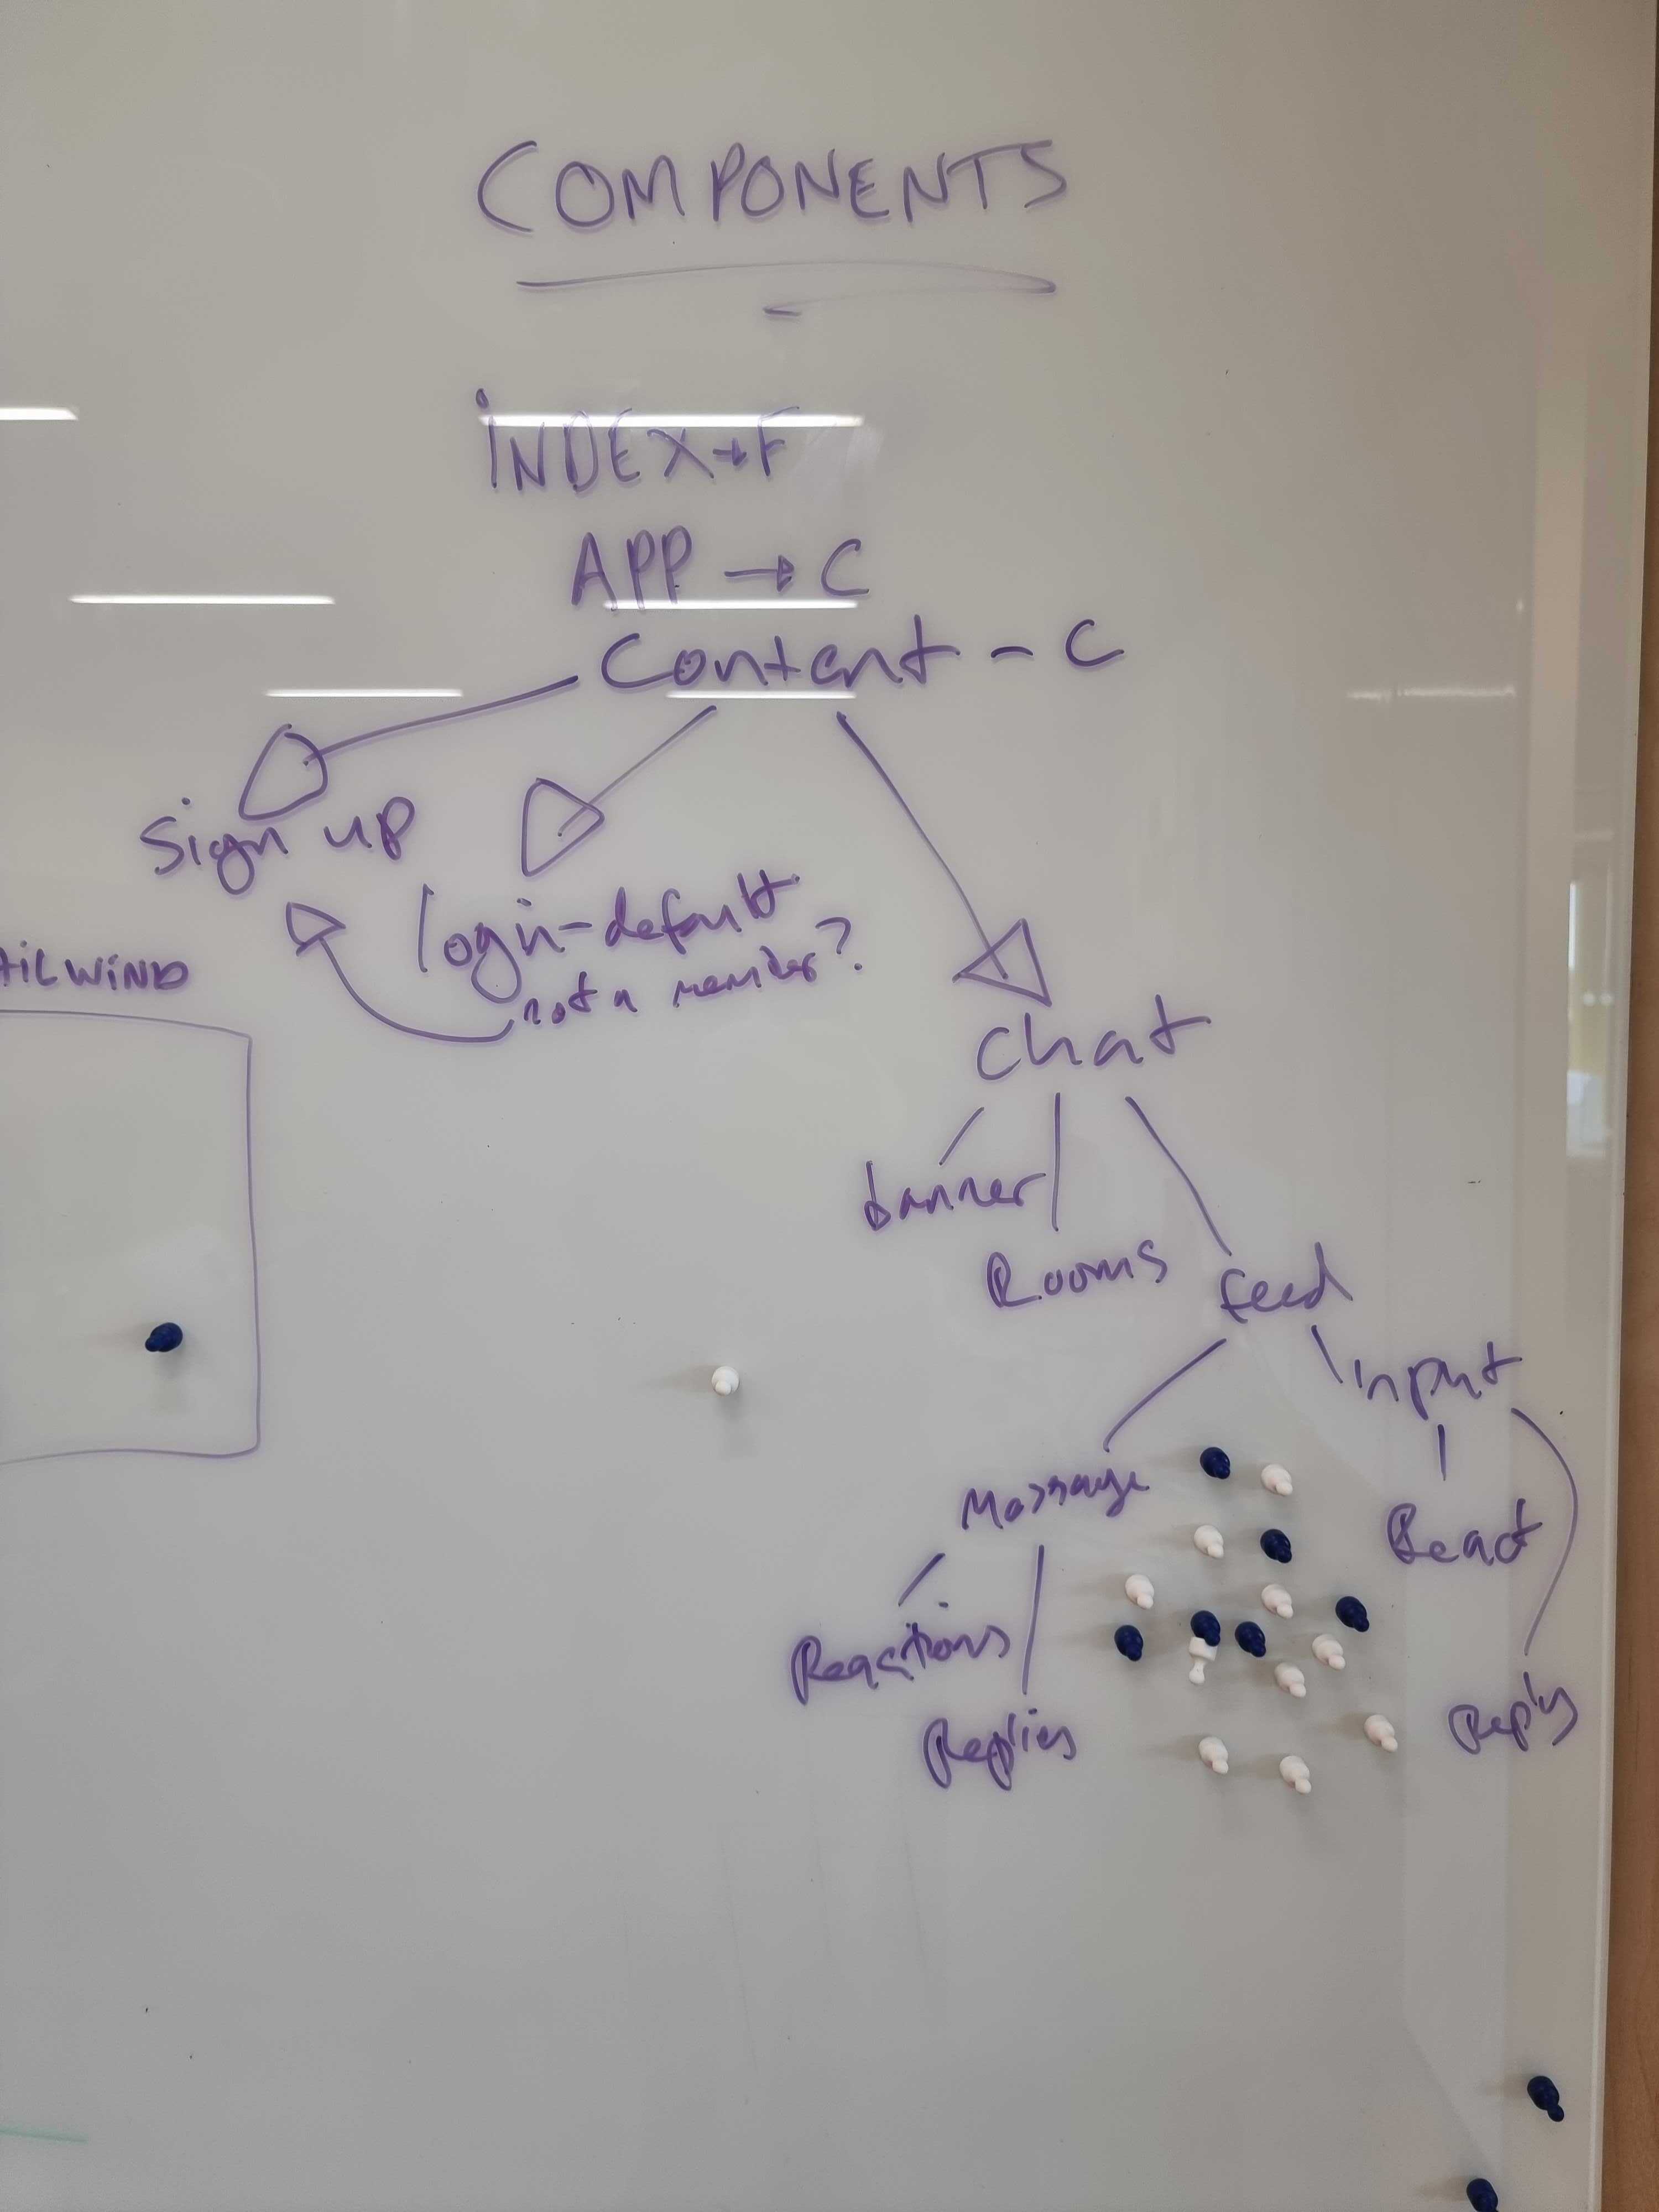 COMPONENTS
INDEX → F
APP → C
Content - C
Sign up
login - default
not a member?
AILWIND
Chat
banner
Rooms
feed
input
Message
React
Reactions
Replies
Reply